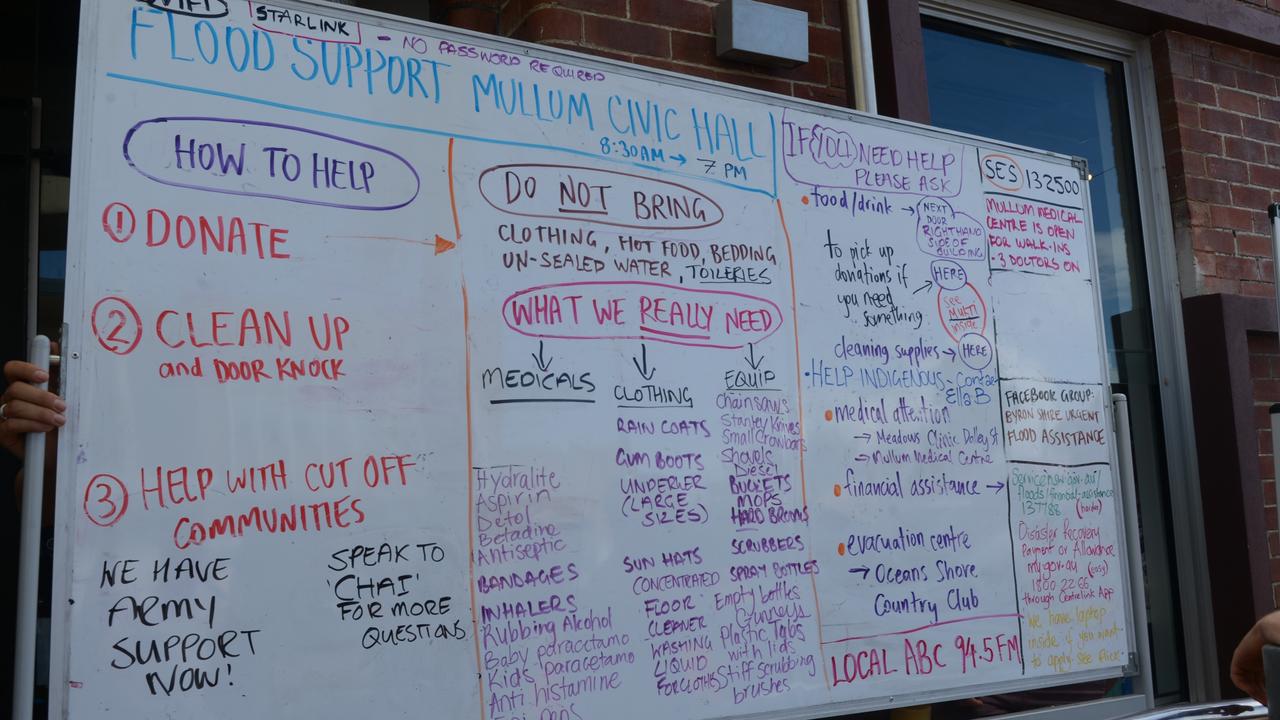 WIFI
STARLINK - NO PASSWORD REQUIRED
FLOOD SUPPORT MULLUM CIVIC HALL
8:30AM → 7 PM
HOW TO HELP
① DONATE
② CLEAN UP
and DOOR KNOCK
③ HELP WITH CUT OFF
COMMUNITIES
WE HAVE
ARMY
SUPPORT
NOW!
SPEAK TO
'CHAI'
FOR MORE
QUESTIONS
DO NOT BRING
CLOTHING, HOT FOOD, BEDDING
UN-SEALED WATER, TOILERIES
WHAT WE REALLY NEED
MEDICALS
Hydralite
Aspirin
Detol
Betadine
Antiseptic
BANDAGES
INHALERS
Rubbing Alcohol
Baby paracetamo
Kid's paracetamo
Anti histamine
CLOTHING
RAIN COATS
GUM BOOTS
UNDERWER
(LARGE
SIZES)
SUN HATS
CONCENTRATED
FLOOR
CLEANER
WASHING
LIQUID
FOR CLOTHES
EQUIP
Chainsaws
Stanley Knives
Small Crowbars
Shovels
Diesel
BUCKETS
MOPS
HARD BROOMS
SCRUBBERS
SPRAY BOTTLES
Empty bottles
Gurneys
Plastic tabs
with lids
Stiff scrubbing
brushes
IF YOU NEED HELP
PLEASE ASK
food/drink →
NEXT
DOOR
RIGHTHAND
SIDE OF
BUILDING
to pick up
donations if
you need
something
HERE
See
MULTI
inside
cleaning supplies → HERE
• HELP INDIGENOUS - Contac
Ella B
• medical attention
→ Meadows Clinic Dalley St
→ Mullum Medical Centre
• financial assistance →
• evacuation centre
→ Oceans Shore
Country Club
LOCAL ABC 94.5FM
SES 132500
MULLUM MEDICAL
CENTRE IS OPEN
FOR WALK-INS
• 3 DOCTORS ON
FACEBOOK GROUP:
BYRON SHIRE URGENT
FLOOD ASSISTANCE
Servicensw.gov.au/
floods/financial-assistance
137788 (harder)
Disaster Recovery
Payment or Allowance
my.gov.au (easy)
1800 22 66
through Centrelink APP
We have laptop
inside if you want
to apply see